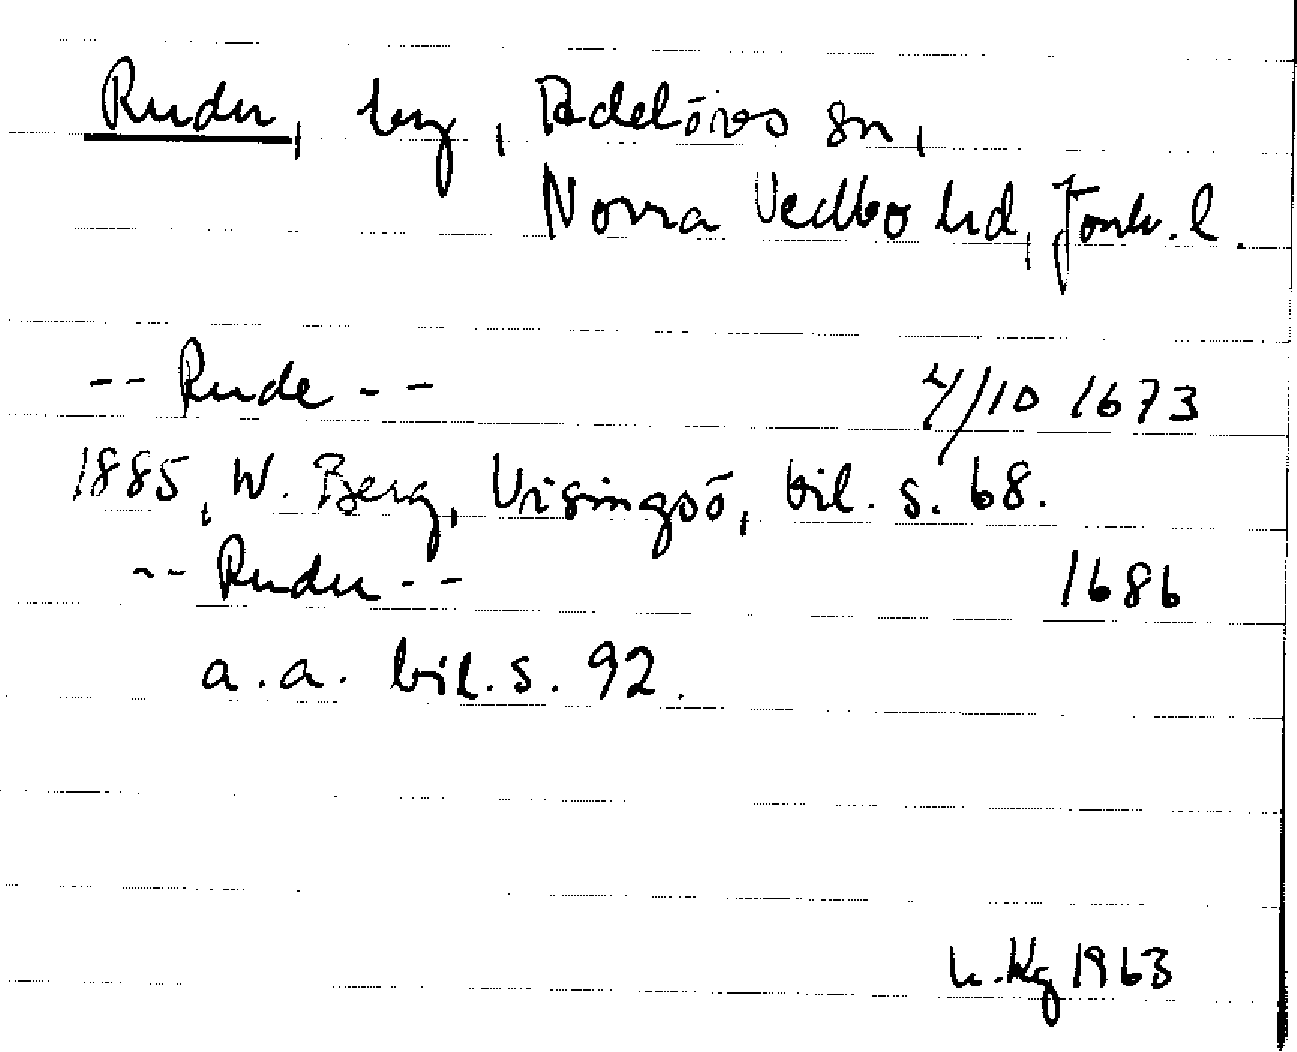 Ruder, by, Adelövs sn,
Norra Vedbo hd, Jönk. l.
-- Rude --   4/10 1673
1885, W. Berg, Visingsö, bil. s. 68.
-- Ruder --   1686
a.a. bil. s. 92.
1963